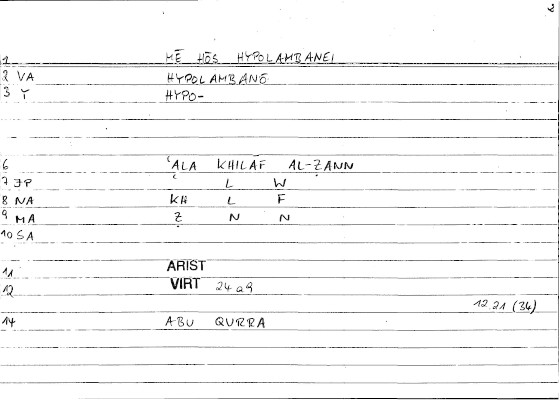 2
1 MĒ HŌS HYPOLAMBANEI
2 VA HYPOLAMBANŌ
3 Y HYPO-
6 ʿALA KHILĀF AL-ẒANN
7 JP ʿ L W
8 NA KH L F
9 MA Ẓ N N
10 SA
11 ARIST
12 VIRT 24 a9
12 21 (34)
14 ABU QURRA